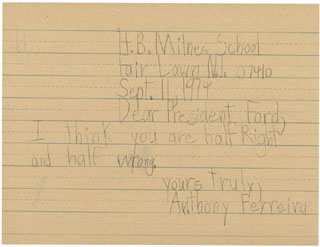 H.B. Milnes School
Fair Lawn N.J. 07410
Sept. 11, 1974
Dear President Ford,
I think you are half Right
and half wrong.
yours truly,
Anthony Ferreira